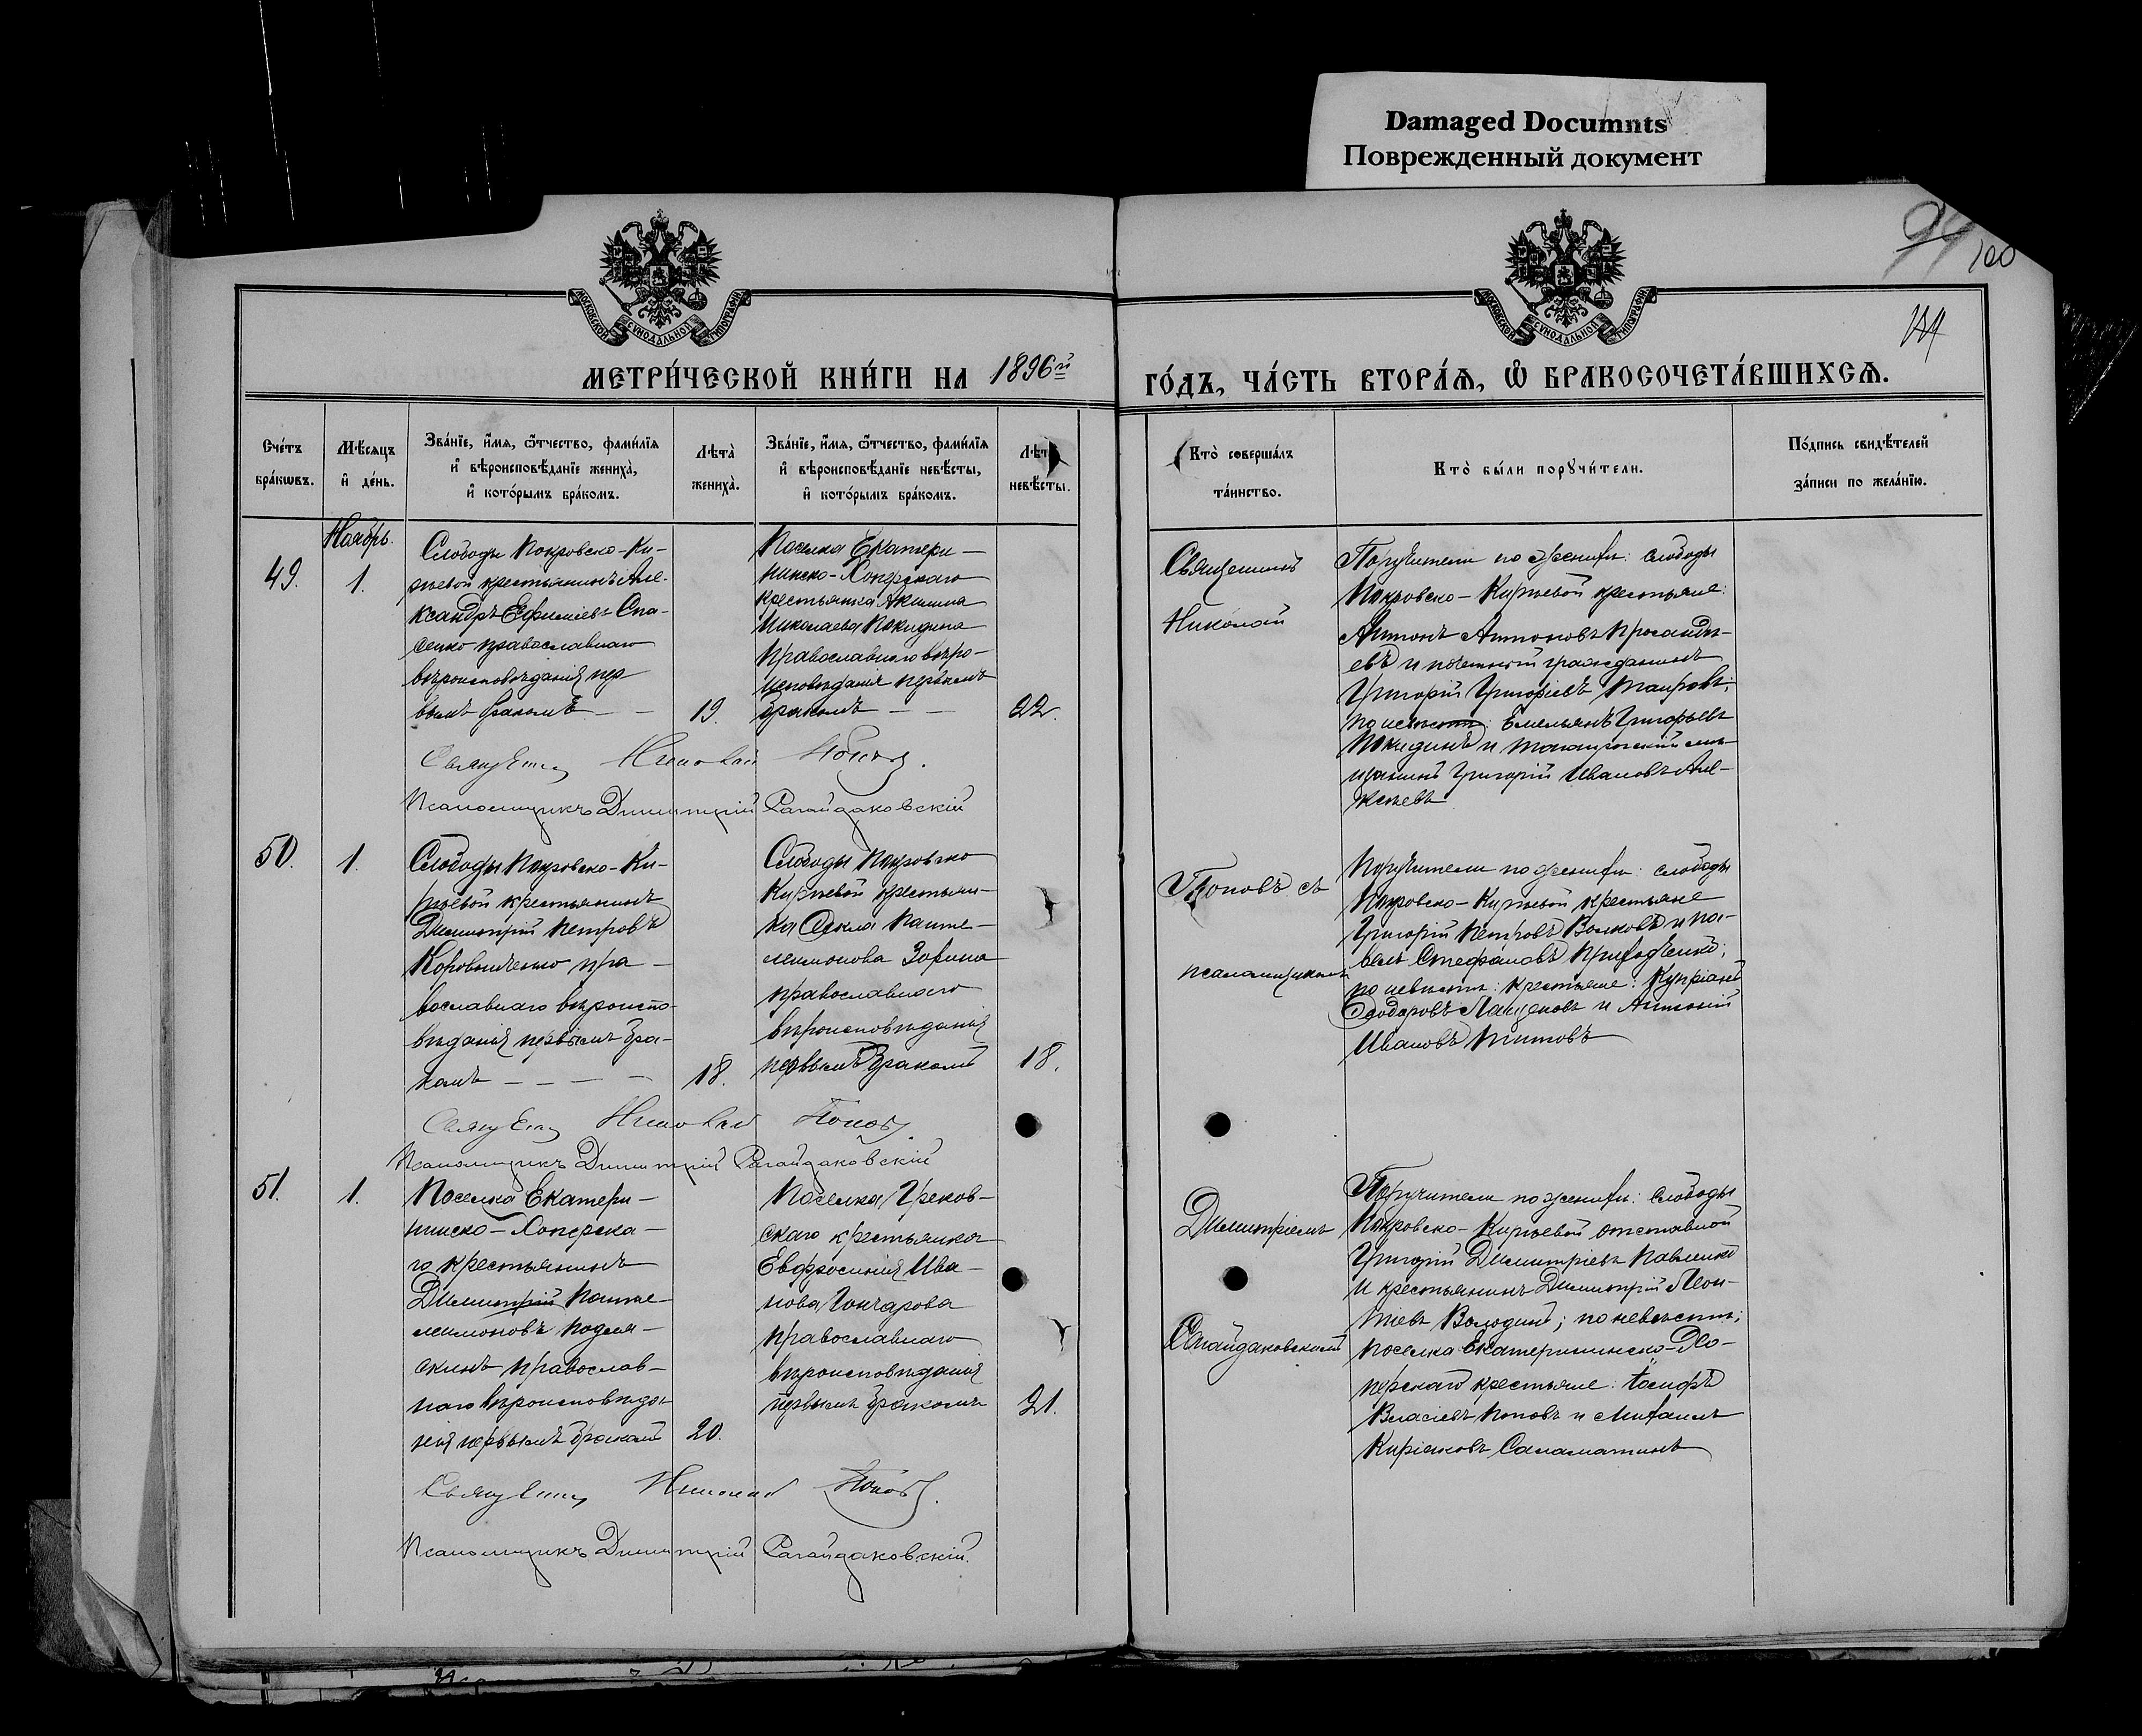 Damaged Documnts
Поврежденный документ
99 100
МОСКОВСКОЙ СѴНОДАЛЬНОЙ ТИПОГРАФІИ
МОСКОВСКОЙ СѴНОДАЛЬНОЙ ТИПОГРАФІИ
МЕТРИ́ЧЕСКОЙ КНИ́ГИ НА 1896й
ГО́ДЪ, ЧА́СТЬ ВТОРА́Ѧ, Ѡ҆ БРАКОСОЧЕТА́ВШИХСѦ.
Сче́тъ бра́кѡвъ.
Мѣ́сѧцъ и҆ де́нь.
Зва́нїе, и҆́мѧ, ѻ҆́тчество, фами́лїѧ
и҆ вѣроисповѣ́данїе жениха̀,
и҆ кото́рымъ бра́комъ.
Лѣта̀
жениха̀.
Зва́нїе, и҆́мѧ, ѻ҆́тчество, фами́лїѧ
и҆ вѣроисповѣ́данїе невѣ́сты,
и҆ кото́рымъ бра́комъ.
Лѣт
невѣ́сты.
Кто̀ соверша́лъ
та́инство.
Кто̀ бы́ли порꙋчи́тели.
По́дпись свидѣ́телей
за́писи по жела́нїю.
Ноябрь.
49.
1.
Слободы Покровско-Ки-
рѣевой крестьянинъ Але-
ксандръ Ефиміевъ Спа-
сенко православнаго
вѣроисповѣданія пер
вымъ бракомъ
19.
Поселка Екатери-
нинско-Хоперскаго
крестьянка Акилина
Николаева Покидина
православнаго вѣро-
исповѣданія первымъ
бракомъ
22.
Священникъ
Николай
Поручители по женихѣ: слободы
Покровско-Кирѣевой крестьяне:
Антонъ Антоновъ
евъ и почетный гражданинъ
Григорій Григоріевъ Таировъ;
по невѣстѣ: Емельянъ Григорьевъ
Покидинъ и таганрогскій мѣ-
щанинъ Григорій Ивановъ Але-
ксѣевъ
Священникъ Николай Поповъ.
Псаломщикъ Димитрій Сагайдаковскій
50.
1.
Слободы Покровско-Ки-
рѣевой крестьянинъ
Димитрій Петровъ
Коровниченко пра-
вославнаго вѣроиспо-
вѣданія первымъ бра-
комъ
18.
Слободы Покровско
Кирѣевой крестьян-
ка Ѳекла Панте-
леимонова Зорина
православнаго
вѣроисповѣданія
первымъ бракомъ
18.
Поповъ съ
псаломщикомъ
Поручители по женихѣ: слободы
Покровско-Кирѣевой крестьяне
Григорій Петровъ Волковъ и Па-
велъ Стефановъ Приходченко;
по невѣстѣ: крестьяне: Купріанъ
Ѳеодоровъ Лащеновъ и Антоній
Ивановъ Титовъ
Священникъ Николай Поповъ.
Псаломщикъ Димитрій Сагайдаковскій
51.
1.
Поселка Екатери-
нинско-Хоперска-
го крестьянинъ
Димитрій Панте-
леимоновъ Подля-
скинъ православ-
наго вѣроисповѣда-
нія первымъ бракомъ
20.
Поселка Греков-
скаго крестьянка
Евфросинія Ива-
нова Гончарова
православнаго
вѣроисповѣданія
первымъ бракомъ
21.
Димитріемъ
Сагайдаковскимъ
Поручители по женихѣ: слободы
Покровско-Кирѣевой отставной
Григорій Димитріевъ Павленко
и крестьянинъ Димитрій Леон-
тіевъ Володинъ; по невѣстѣ;
поселка Екатерининско-Хо-
перскаго крестьяне: Іосифъ
Власіевъ Поповъ и Михаилъ
Киріаковъ Саламатинъ
Священникъ Николай Поповъ.
Псаломщикъ Димитрій Сагайдаковскій.